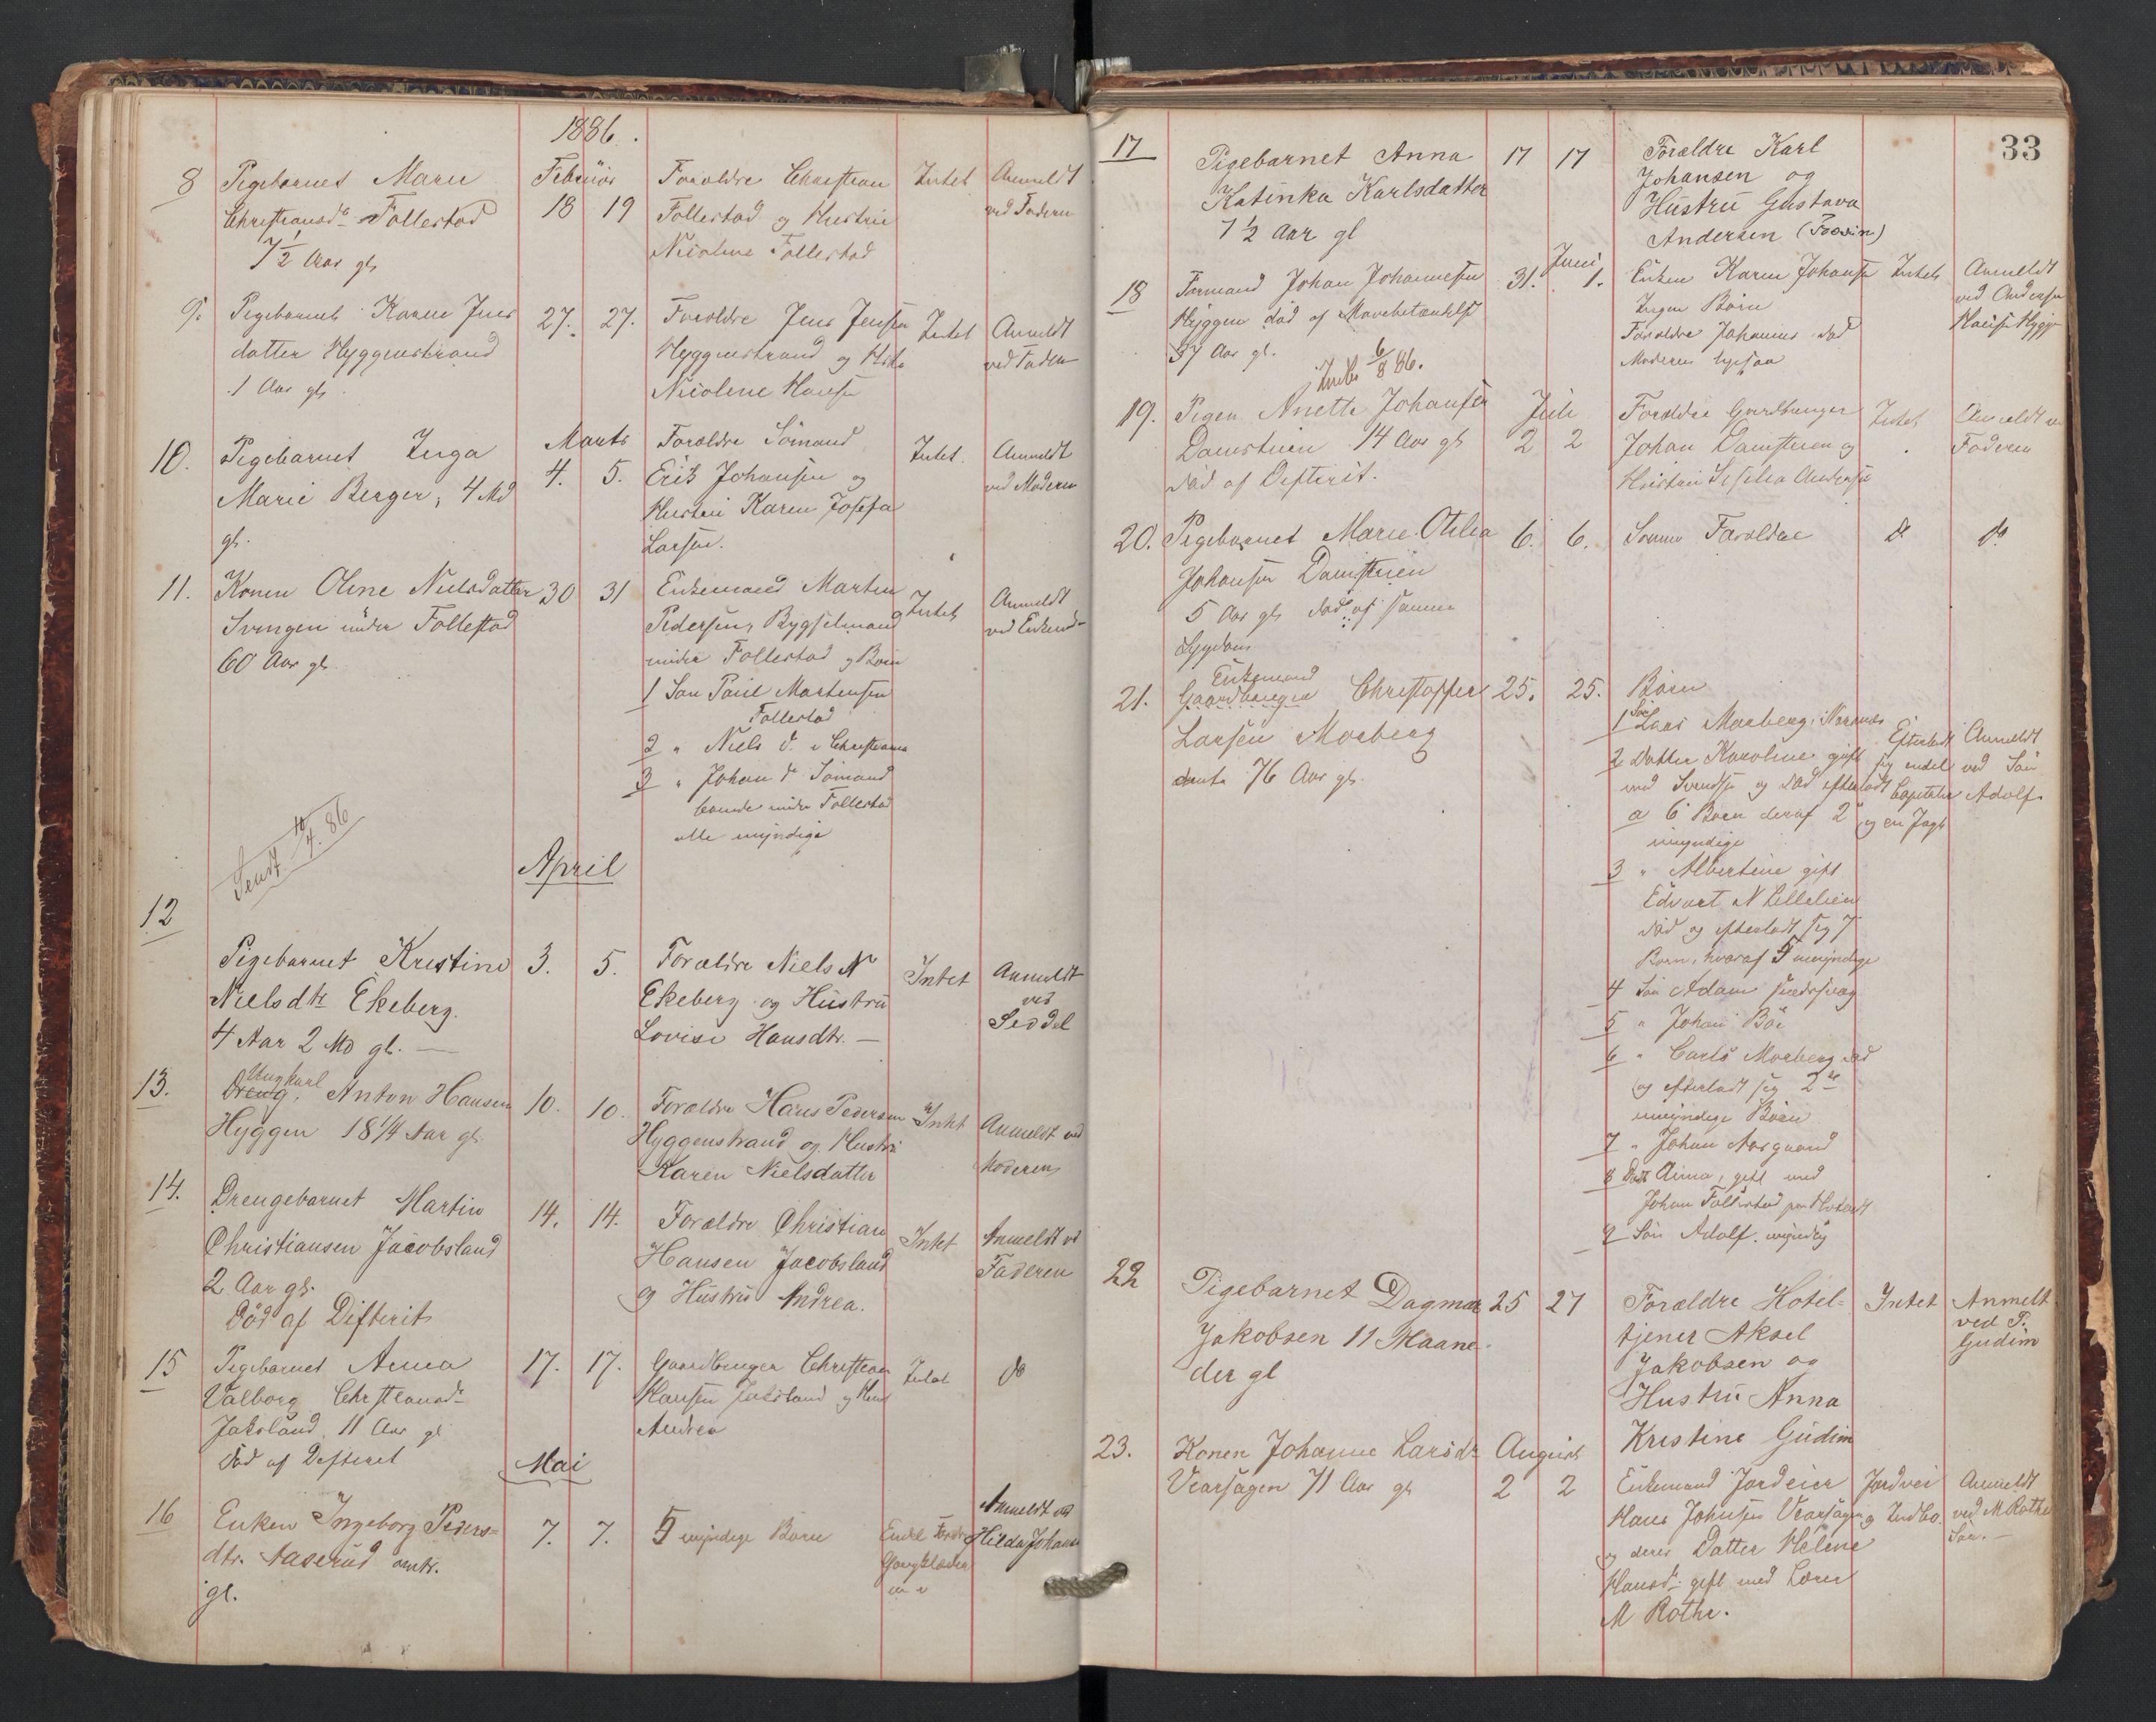 1886.
8 Pigebarnet Marie Februar Forældre Christian Intet Anmeldt
Christiansd. Follestad 18 19 Follestad og Hustru ved Faderen
7 1/2 Aar gl. Nicoline Follestad
9. Pigebarnet Karen Jens 27. 27. Forældre Jens Jensen Intet Anmeldt
datter Hyggenstrand Hyggenstrand og ved Faderen
1 Aar gl. Nicoline Hansen
10. Pigebarnet Inga Marts Forældre Sömand Intet. Anmeldt
Marie Berger, 4 Md 4. 5. Erik Johansen og ved Moderen
gl. Hustru Karen Josefa
Larsen.
11. Konen Oline Nielsdatter 30 31 Enkemand Martin Intet Anmeldt
Svingen under Follestad Pedersen, Bygselmand ved Enkemd.
60 Aar gl. under Follestad og Börn
1 Sön Paül Martensen
Follestad
2 " Niels d. i Christiania
3 " Johan do Sömand
boende under Follestad
alle myndige
Sendt 10/4. 86
April
12
Pigebarnet Kristine 3. 5. Forældre Niels N Intet Anmeldt
Nielsdtr Ekeberg. Ekeberg og Hüstru ved
4 Aar 2 Md gl. — Lovise Hansdtr. — Seddel
13. Dreng. Ungkarl Anton Hansen 10. 10. Forældre Hans Pedersen Intet Anmeldt ved
Hyggen 18 1/4 Aar gl. Hyggenstrand og Hustru Moderen
Karen Nielsdatter
14. Drengebarnet Martin 14. 14. Forældre Christian Intet Anmeldt vd
Christiansen Jacobsland Hansen Jacobsland Faderen
2 Aar gl. og Hüstru Andrea.
Död af Difterit
15 Pigebarnet Anna 17. 17. Gaardbruger Christian Intet do
Valborg Christiansd. Hansen Jaksland og
Jaksland, 11 Aar gl Andrea
Död af Defteret
Mai
16 Enken Ingeborg Peders= 7. 7. 5 myndige Börn Endel Anmeldt ved
dtr. Aaserud omtr. Gangklæder Hilda Johans
gl. m v
33
17 Pigebarnet Anna 17 17 Forældre Karl
Katinka Karlsdatter Johansen og
7 1/2 Aar gl Hüstru Gustava
Andersen
18 Formand Johan Johannesen 31. Juni 1. Enken Karen Johansen Intet Anmeldt
Hyggen död af Mavebetændelse Ingen Börn ved Andersen
37 Aar gl. Forældre Johannes död Hansen Hyggen
Moderen
6/8 86.
19. Pigen Anette Johansen Juli Forældre Gardbruger Intet Anmeldt ved
Damstuen 14 Aar gl. 2 2 Johan Damstuen og Faderen
död af Defterit. Hustru Sesilia Andersen
20. Pigebarnet Marie Otelia 6. 6. Samme Forældre do do
Johansen Damstuen
5 Aar gl. död af samme
Sygdom
21. Gaardbruger Enkemand Christoffer 25. 25. Börn
Larsen Morberg 1 Sön Lars Morberg, Efterladt Anmeldt
omtr. 76 Aar gl. 2 Datter Karoline gift sig endel ved Sön
med Svendsen og död efterladt Capitaler Adolf
a 6 Börn deraf 2 og en Jagt
umyndige
3 " Albertine gift
Edvart N Lillelien
död og efterladt sig 7
Börn, hvoraf 5 umyndige
4 Sön Adam
5 " Johan Böe
6 " Carls Morberg död
og efterladt sig 2de
umyndige Börn
7 " Johan Aasgaard
8 Datt Anna, gift med
Johan Follestad
9 Sön Adolf. myndig
22 Pigebarnet Dagmar 25 27 Forældre Hotel= Intet Anmelt
Jakobsen 11 Maane- tjener Aksel ved P.
der gl Jakobsen og Gudim
Hustru Anna
Kristine Gudim
23. Konen Johanne Larsdr. August Enkemand Jordeier Jordvei Anmeldt
Vearsagen 71 Aar gl. 2 2 Hans Johnsen Vearsagen og Indbo. ved M Rothe
og deres Datter Helene Sön. —
Hansd. gift med Lærer
M Rothe.